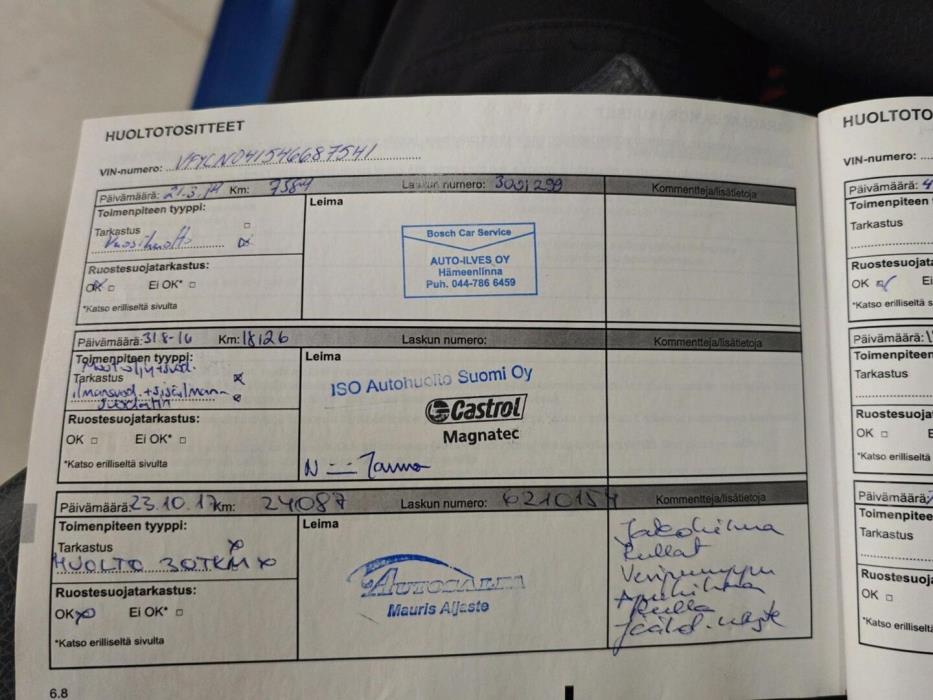 HUOLTOTOSITTEET
VIN-numero:
Päivämäärä: 21.3.14 Km: 7584 Laskun numero: 3091299 Kommentteja/lisätietoja
Toimenpiteen tyyppi:
Tarkastus
Vuosihuolto
Ruostesuojatarkastus:
OK Ei OK*
*Katso erilliseltä sivulta
Leima
Bosch Car Service
AUTO-ILVES OY
Hämeenlinna
Puh. 044-786 6459
Päivämäärä: 31.8-16 Km: 18126 Laskun numero: Kommentteja/lisätietoja
Toimenpiteen tyyppi:
Tarkastus
Ruostesuojatarkastus:
OK Ei OK*
*Katso erilliseltä sivulta
Leima
ISO Autohuolto Suomi Oy
Castrol
Magnatec
Päivämäärä: 23.10.17 Km: 24087 Laskun numero: 6210154 Kommentteja/lisätietoja
Toimenpiteen tyyppi:
Tarkastus
HUOLTO 30TKM
Ruostesuojatarkastus:
OK Ei OK*
*Katso erilliseltä sivulta
Leima
AUTOSALPA
Mauris Aljaste
Jakohihna
Rullat
Vesipumppu
Apuhihna
Rulla
Jäähd. neste
6.8
HUOLTOTO
VIN-numero:
Päivämäärä: 4
Toimenpiteen
Tarkastus
Ruostesuojat
OK Ei
*Katso erilliseltä
Päivämäärä:
Toimenpiteen
Tarkastus
Ruostesuoja
OK
*Katso erilliselt
Päivämäärä:
Toimenpitee
Tarkastus
Ruostesuoj
OK
*Katso erillise